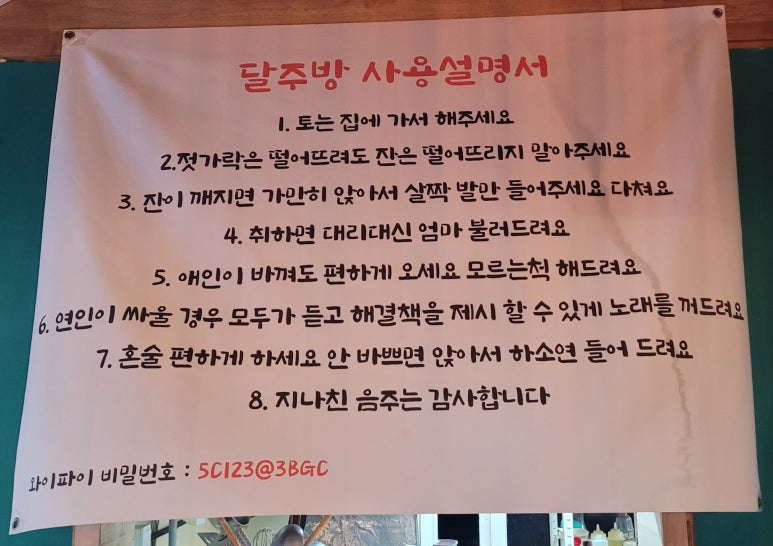 달주방 사용설명서
1. 토는 집에 가서 해주세요
2.젓가락은 떨어뜨려도 잔은 떨어뜨리지 말아주세요
3. 잔이 깨지면 가만히 앉아서 살짝 발만 들어주세요 다쳐요
4. 취하면 대리대신 엄마 불러드려요
5. 애인이 바껴도 편하게 오세요 모르는척 해드려요
6. 연인이 싸울 경우 모두가 듣고 해결책을 제시 할 수 있게 노래를 꺼드려요
7. 혼술 편하게 하세요 안 바쁘면 앉아서 하소연 들어 드려요
8. 지나친 음주는 감사합니다
와이파이 비밀번호 : 5C123@3BGC